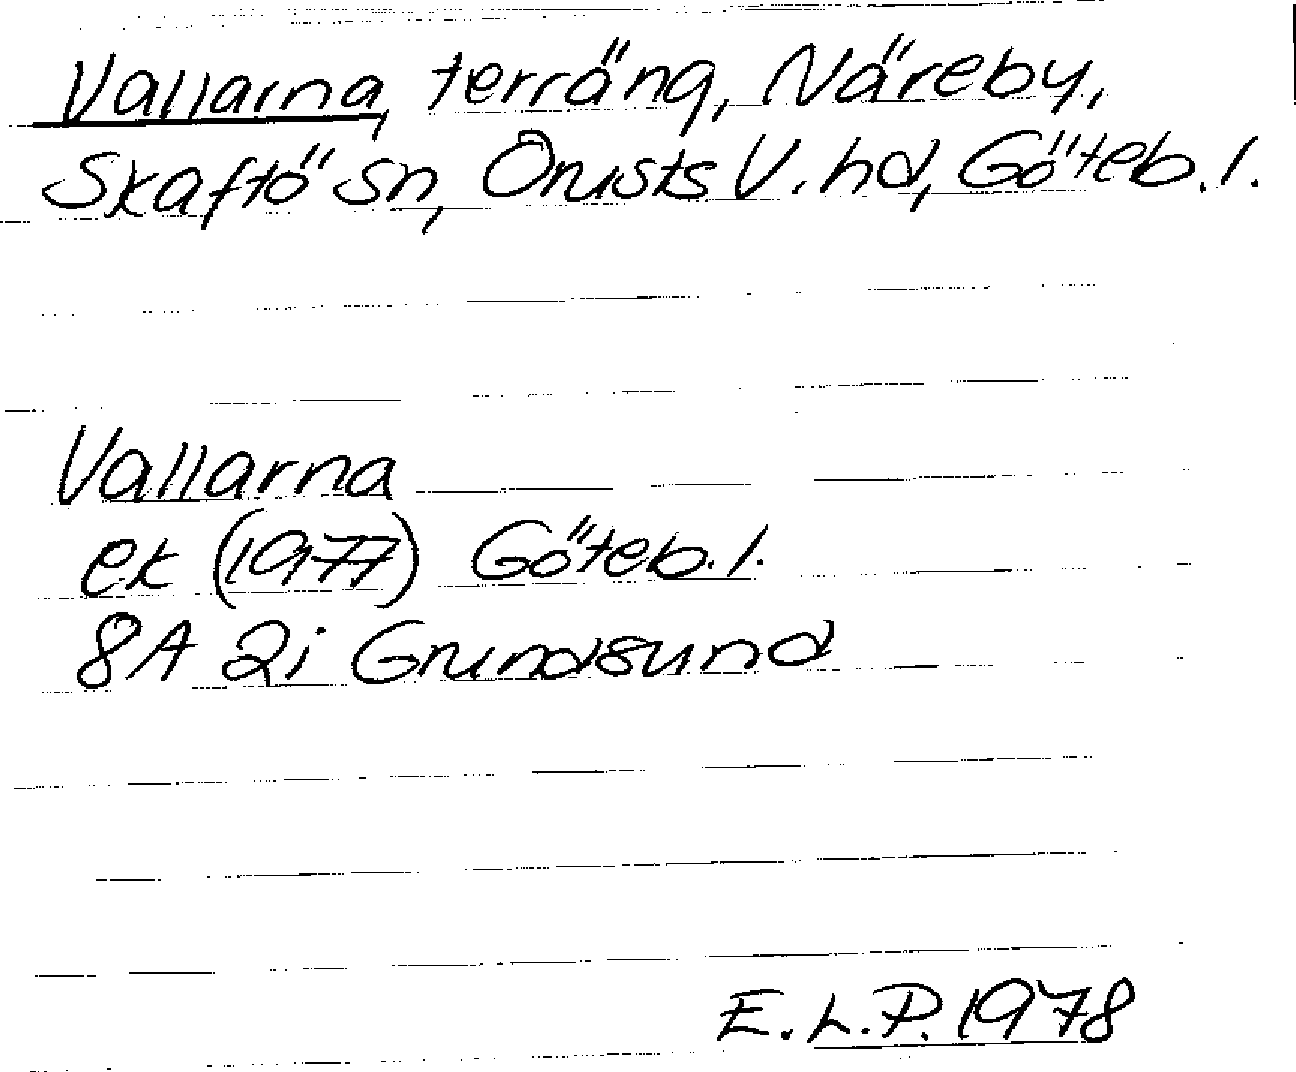 Vallarna, terräng, Näreby,
Skaftö sn, Orusts V. hd, Göteb. l.
Vallarna
ek (1977) Göteb. l.
8A 2i Grundsund
E. L. P. 1978